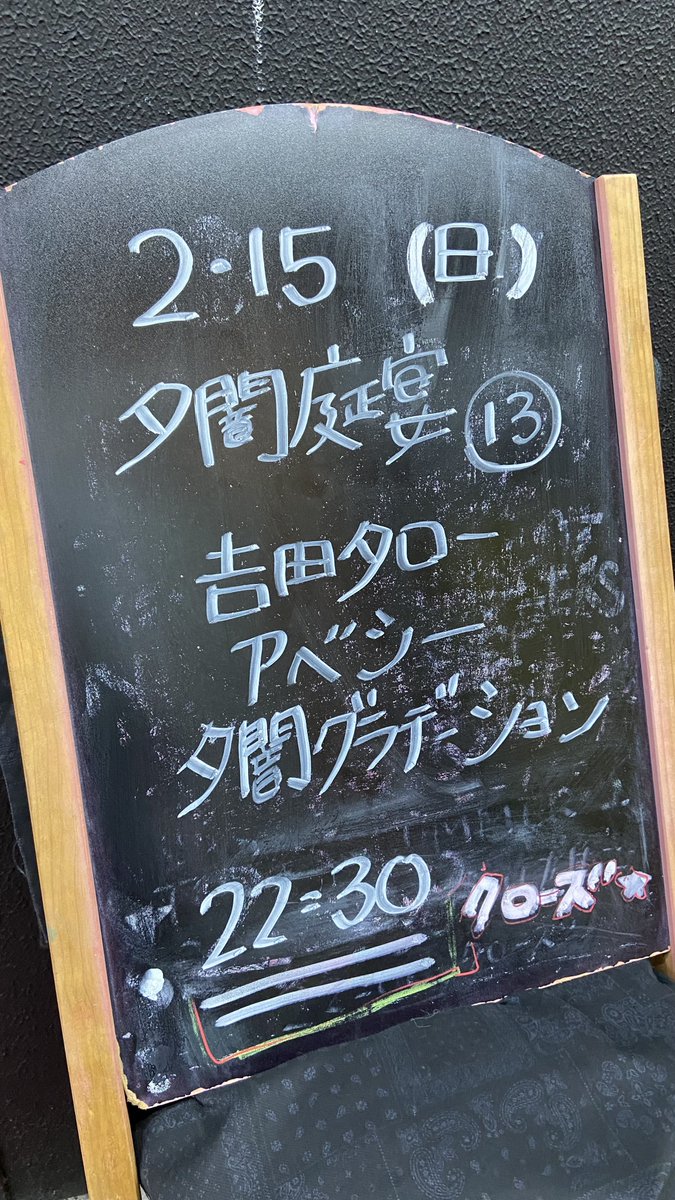 2・15 (日)
夕闇庭宴 ⑬
吉田タロー
アベシー
夕闇グラデーション
22:30 クローズ☆